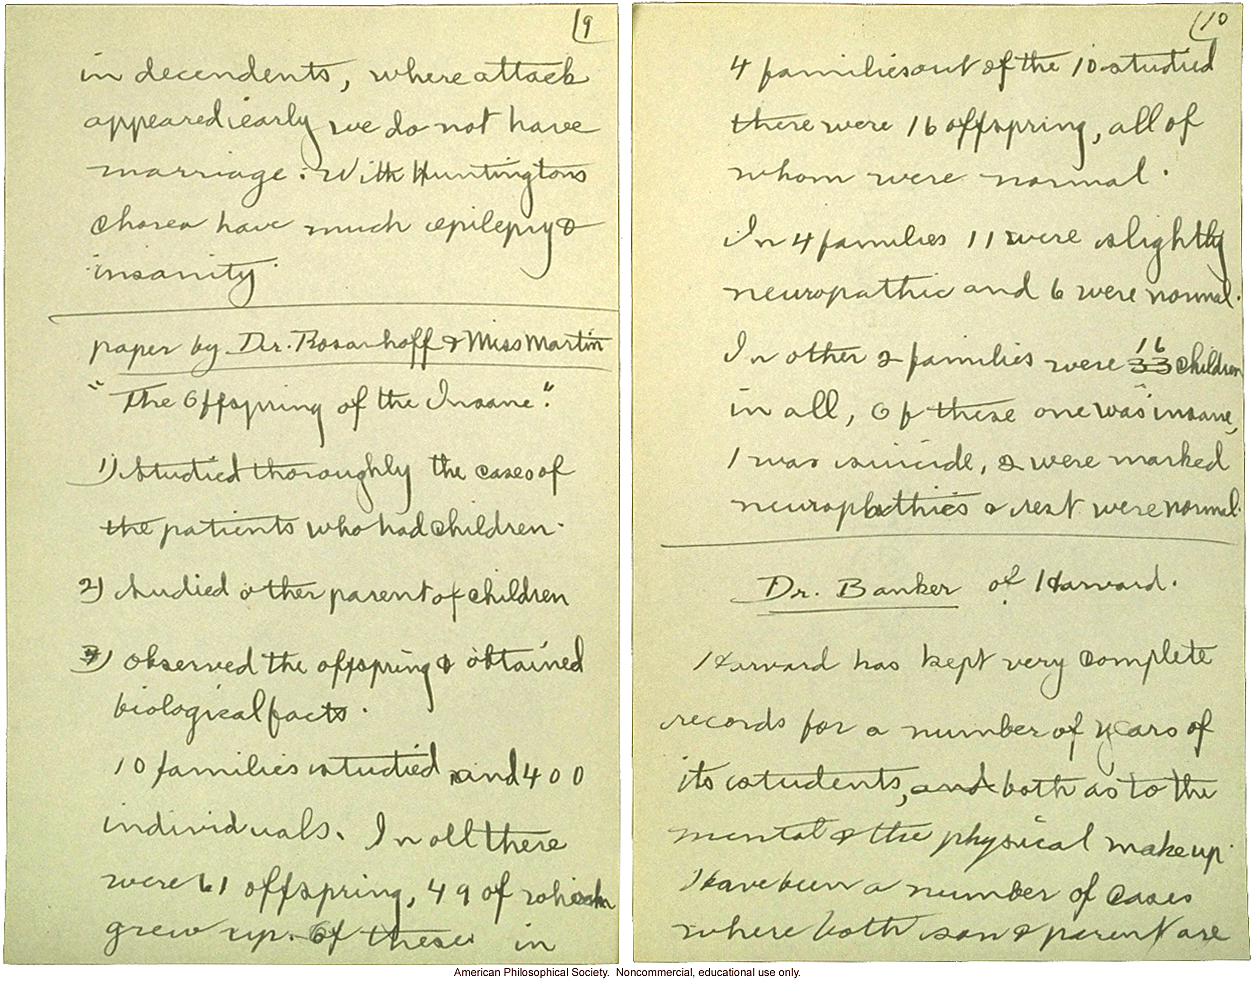 9
in decendents, where attack
appeared early we do not have
marriage. With Huntingtons
Chorea have much epilepsy &
insanity.
paper by Dr. Rosanhoff & Miss Martin
"The Offspring of the Insane".
1) Studied thoroughly the cases of
the patients who had children.
2) Studied other parent of children
3) observed the offspring & obtained
biological facts.
10 families studied and 400
individuals. In all there
were 61 offspring, 49 of which
grew up. Of these in
10
4 families out of the 10 studied
there were 16 offspring, all of
whom were normal.
In 4 families 11 were slightly
neuropathic and 6 were normal.
In other 2 families were 33 16 children
in all, Of these one was insane,
1 was suicide, 2 were marked
neuropathics & rest were normal.
Dr. Banker of Harvard.
Harvard has kept very complete
records for a number of years of
its students, and both as to the
mental & the physical makeup
Have been a number of cases
where both son & parent are
American Philosophical Society. Noncommercial, educational use only.